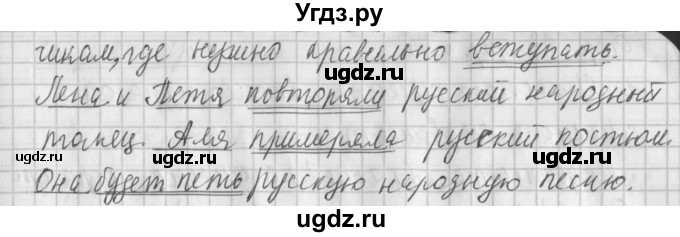 Угдз.ру
чикам, где нужно правельно вступать.
Лена и Петя повторяли русский народный
танец. Аля примеряла русский костюм.
Она будет петь русскую народную песню.
uгдz.ru
uгдz.ru
uгдz.ru
uгдz.ru
uгдz.ru
uгдz.ru
uгдz.ru
uгдz.ru